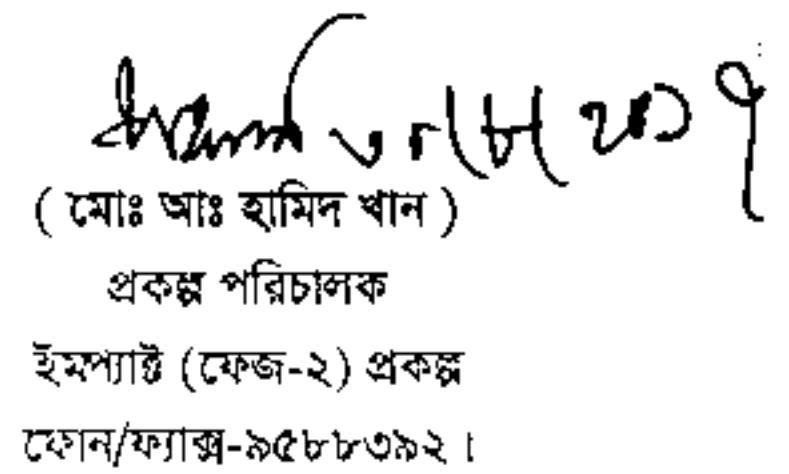 ( মোঃ আঃ হামিদ খান )
প্রকল্প পরিচালক
ইমপ্যাক্ট (ফেজ-২) প্রকল্প
ফোন/ফ্যাক্স-৯৫৮৮৩৯২।